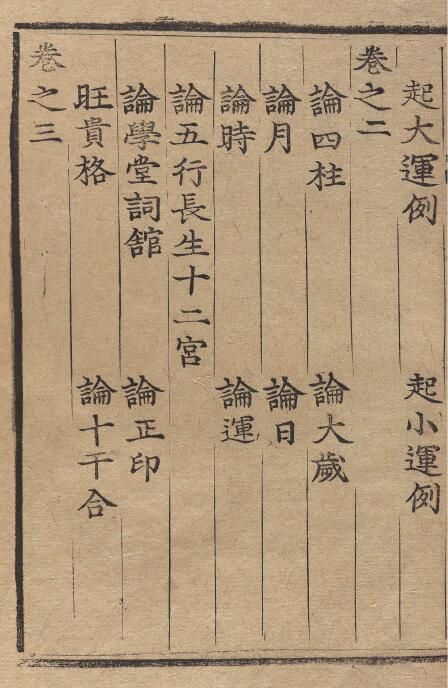 起大運例 起小運例
卷之二
論四柱 論大歲
論月 論日
論時 論運
論五行長生十二宮
論學堂詞舘 論正印
旺貴格 論十干合
卷之三